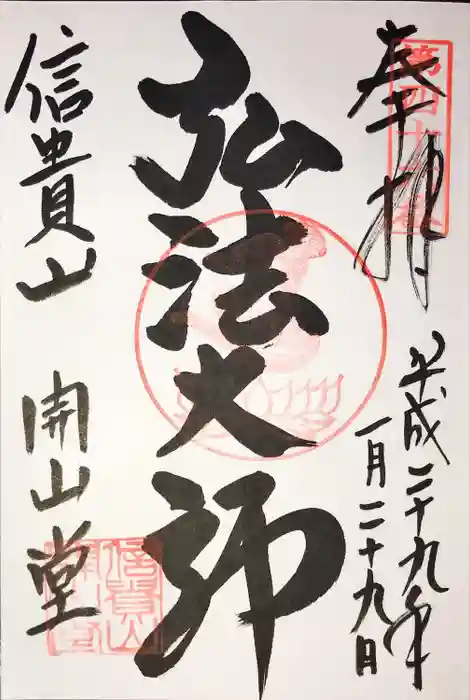 奉拝
平成二十九年
一月二十九日
弘法大師
信貴山 開山堂
信貴山